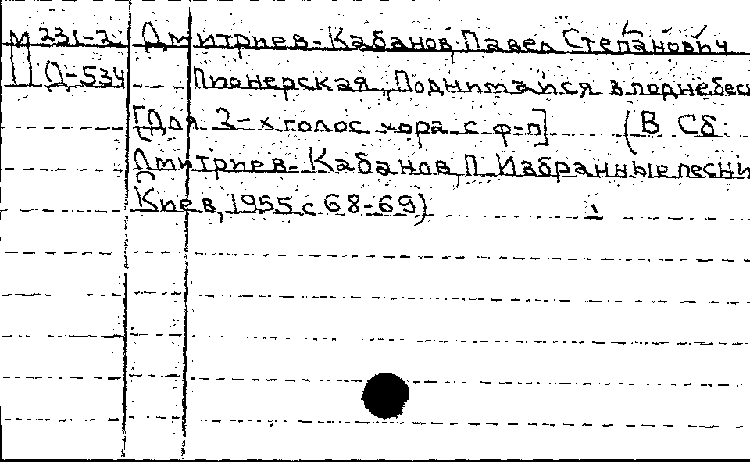 М 231-2 Дмитриев-Кабанов Павел Степанович
Д-534 Пионерская „Поднимайся в поднебес
[Для 2-х голос хора с ф-п] (В Сб:
Дмитриев-Кабанов, П. Избранные песни
Киев, 1955 с 68-69)